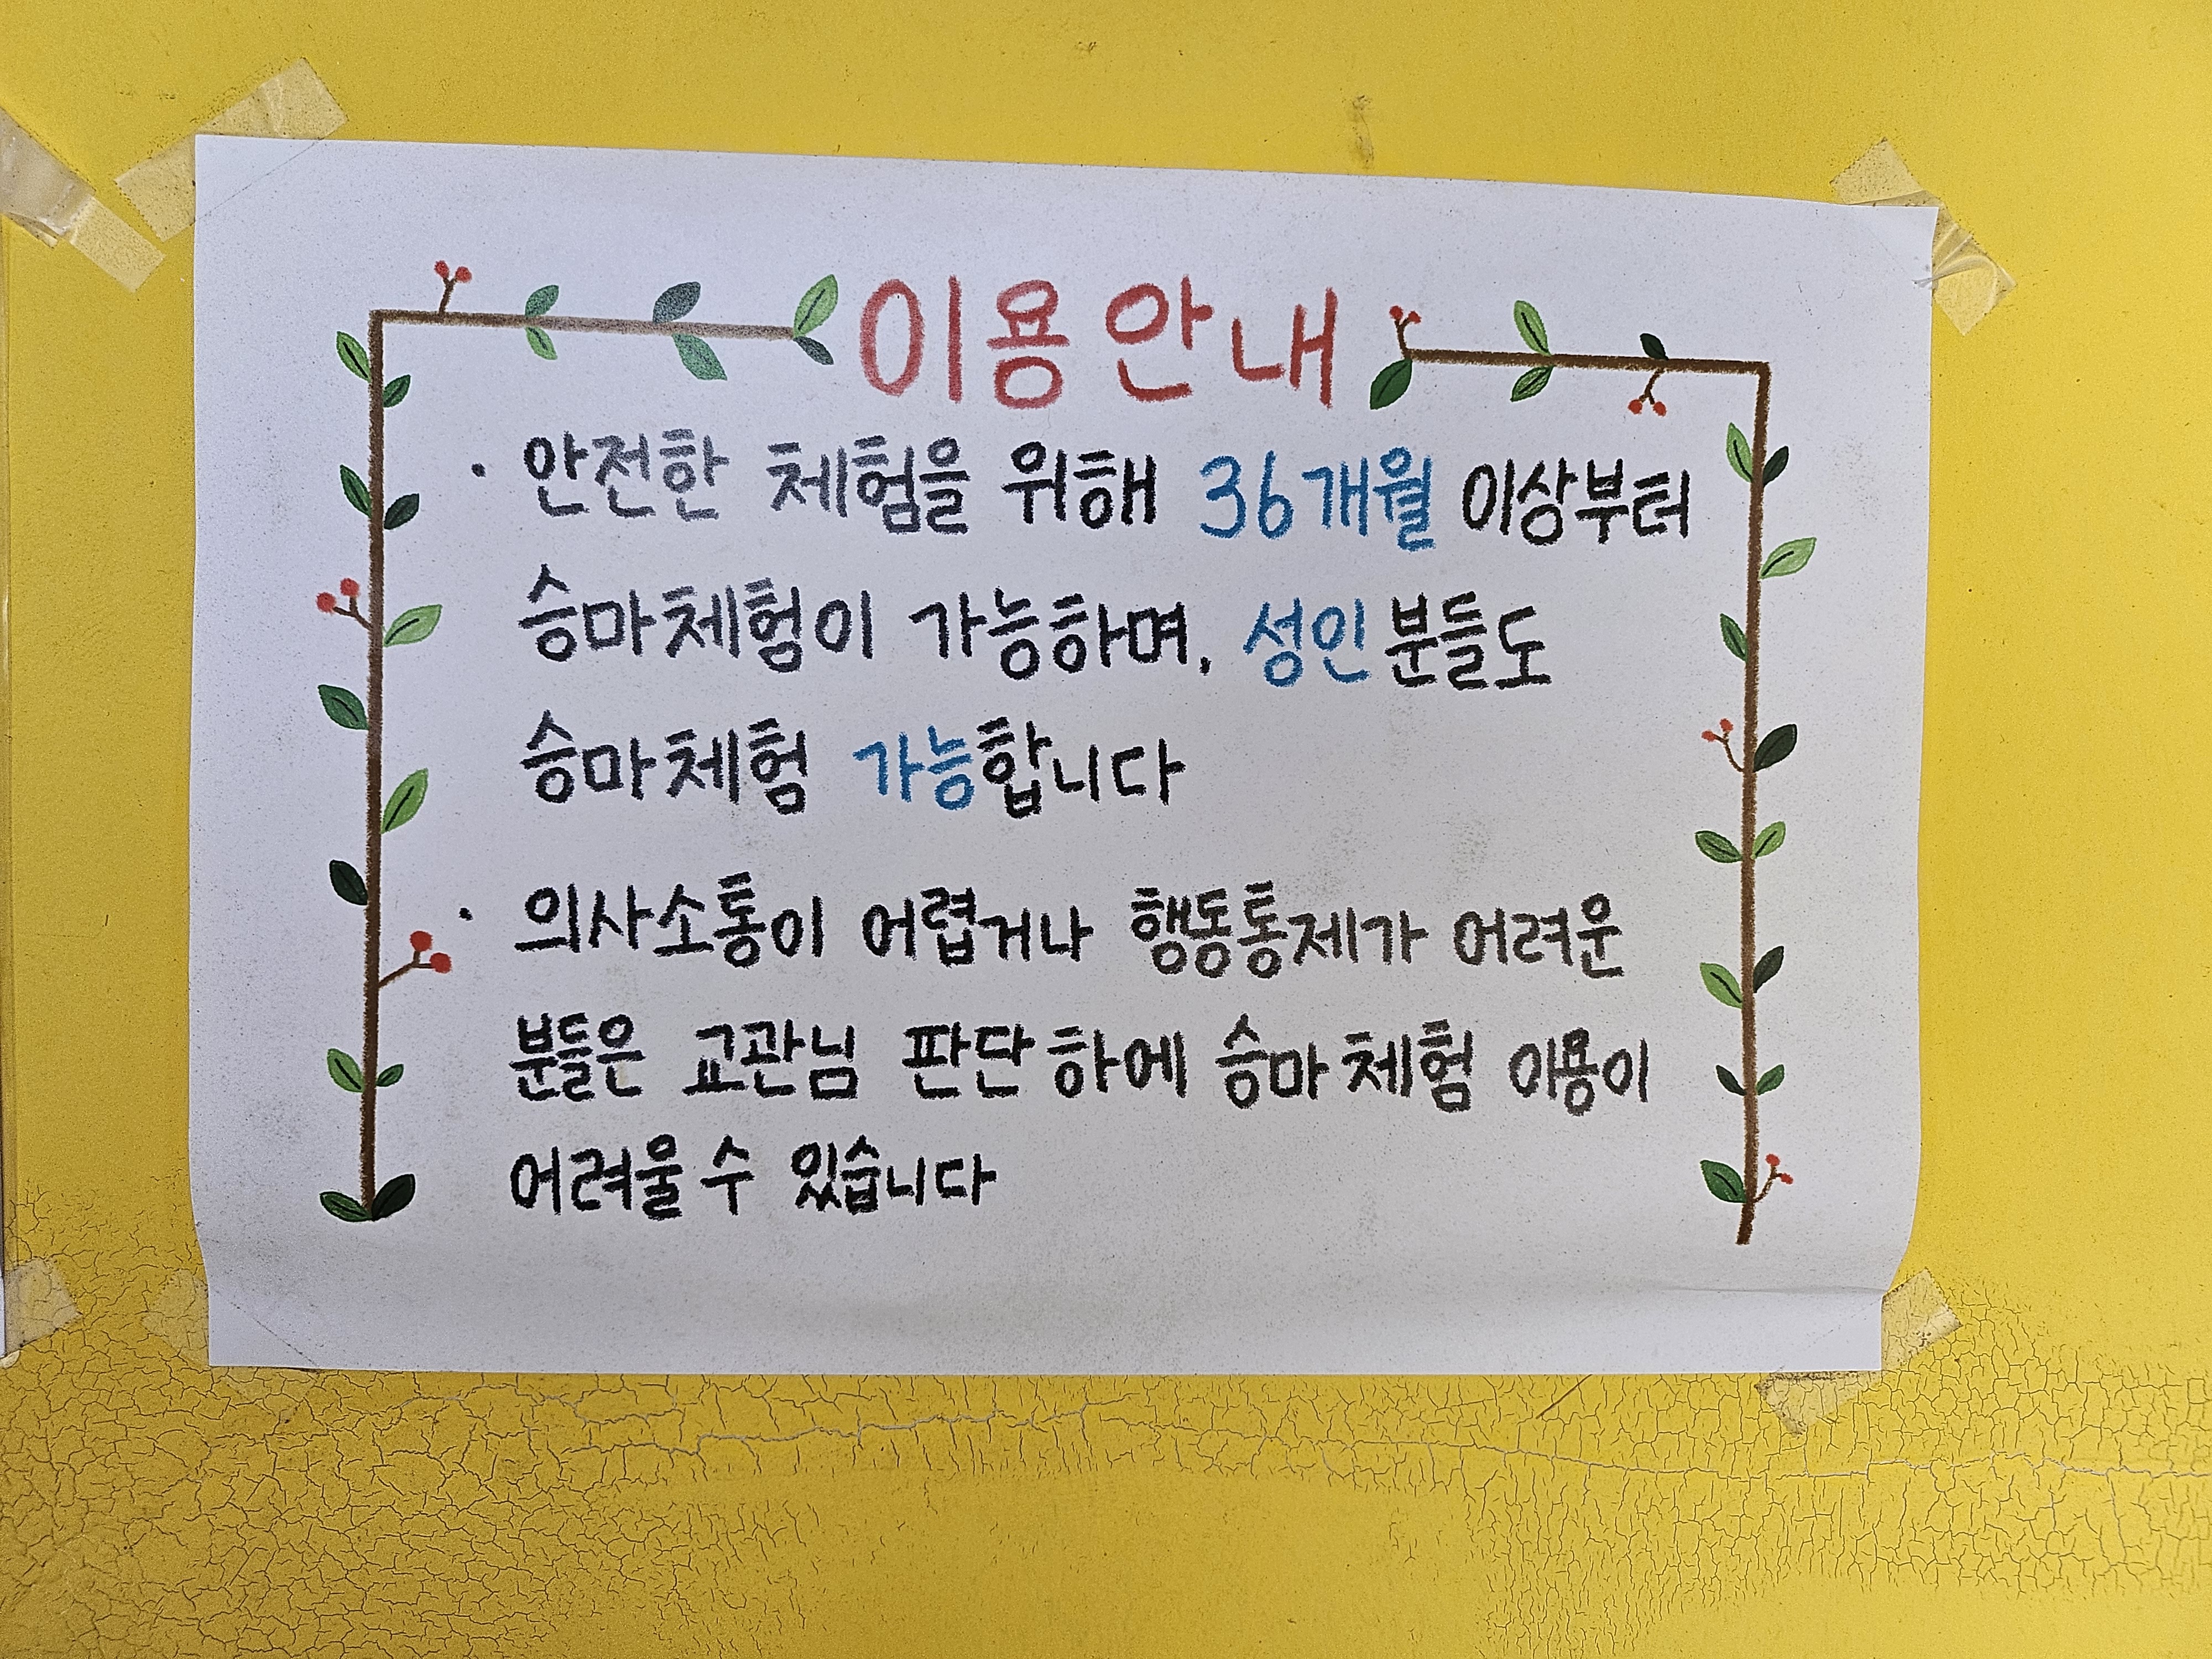 이용안내
· 안전한 체험을 위해 36개월 이상부터
승마체험이 가능하며, 성인분들도
승마체험 가능합니다
· 의사소통이 어렵거나 행동통제가 어려운
분들은 교관님 판단하에 승마체험 이용이
어려울 수 있습니다